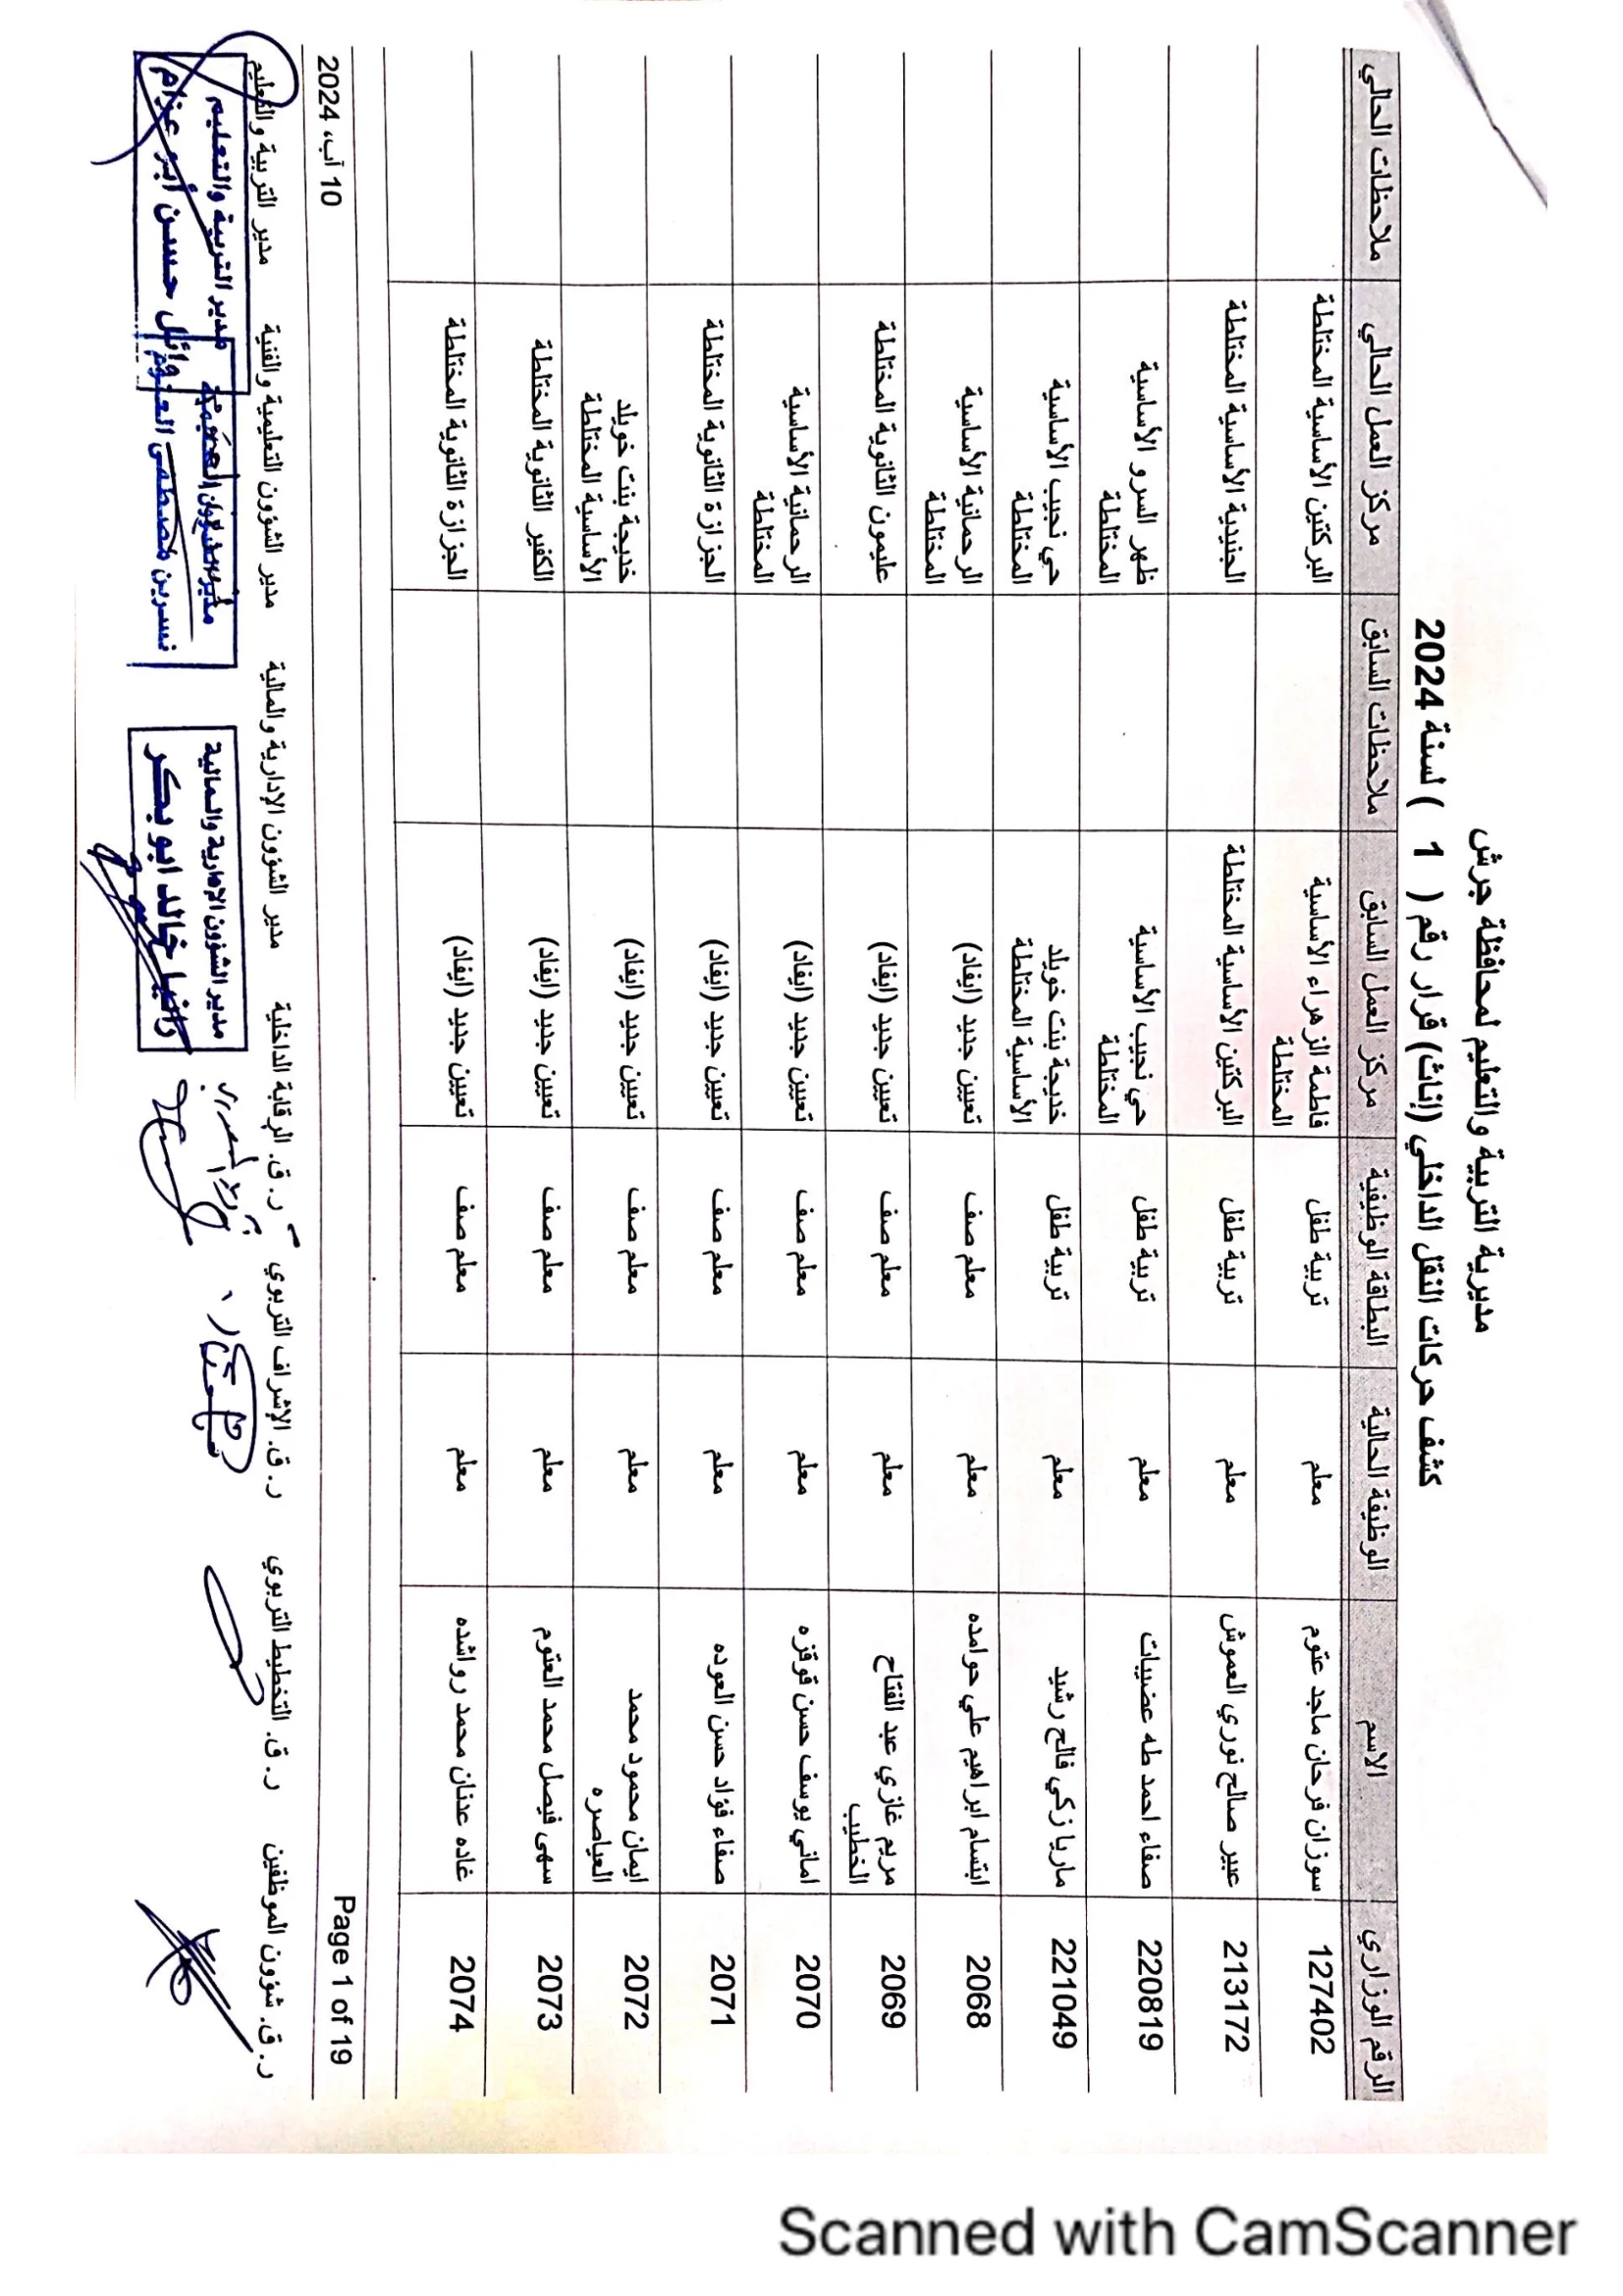 مديرية التربية والتعليم لمحافظة جرش
كشف حركات النقل الداخلي (إناث) قرار رقم ( 1 ) لسنة 2024
الرقم الوزاري الاسم الوظيفة الحالية البطاقة الوظيفية مركز العمل السابق ملاحظات السابق مركز العمل الحالي ملاحظات الحالي
127402 سوزان فرحان ماجد عتوم معلم تربية طفل فاطمة الزهراء الأساسية المختلطة البركتين الأساسية المختلطة
213172 عبير صالح نوري العموش معلم تربية طفل البركتين الأساسية المختلطة الجنيدية الأساسية المختلطة
220819 صفاء احمد طه عضيبات معلم تربية طفل حي نجيب الأساسية المختلطة ظهر السرو الأساسية المختلطة
221049 ماريا زكي فالح رشيد معلم تربية طفل خديجة بنت خويلد الأساسية المختلطة حي نجيب الأساسية المختلطة
2068 ابتسام ابراهيم علي حوامده معلم معلم صف تعيين جديد (ايفاد) الرحمانية الأساسية المختلطة
2069 مريم غازي عبد الفتاح الخطيب معلم معلم صف تعيين جديد (ايفاد) عليمون الثانوية المختلطة
2070 اماني يوسف حسن قوقزه معلم معلم صف تعيين جديد (ايفاد) الرحمانية الأساسية المختلطة
2071 صفاء فؤاد حسن العوده معلم معلم صف تعيين جديد (ايفاد) الجزازة الثانوية المختلطة
2072 ايمان محمود محمد العياصره معلم معلم صف تعيين جديد (ايفاد) خديجة بنت خويلد الأساسية المختلطة
2073 سهى فيصل محمد العتوم معلم معلم صف تعيين جديد (ايفاد) الكفير الثانوية المختلطة
2074 غاده عدنان محمد رواشده معلم معلم صف تعيين جديد (ايفاد) الجزازة الثانوية المختلطة
Page 1 of 19 10 آب، 2024
ر.ق. شؤون الموظفين ر.ق. التخطيط التربوي ر.ق. الإشراف التربوي ر.ق. الرقابة الداخلية مدير الشؤون الإدارية والمالية مدير الشؤون التعليمية والفنية مدير التربية والتعليم
مدير الشؤون الادارية والمالية
رانيا خالد ابو بكر
نسرين مصطفى العتوم
مدير التربية والتعليم
وائل حسن أبو عزام
Scanned with CamScanner